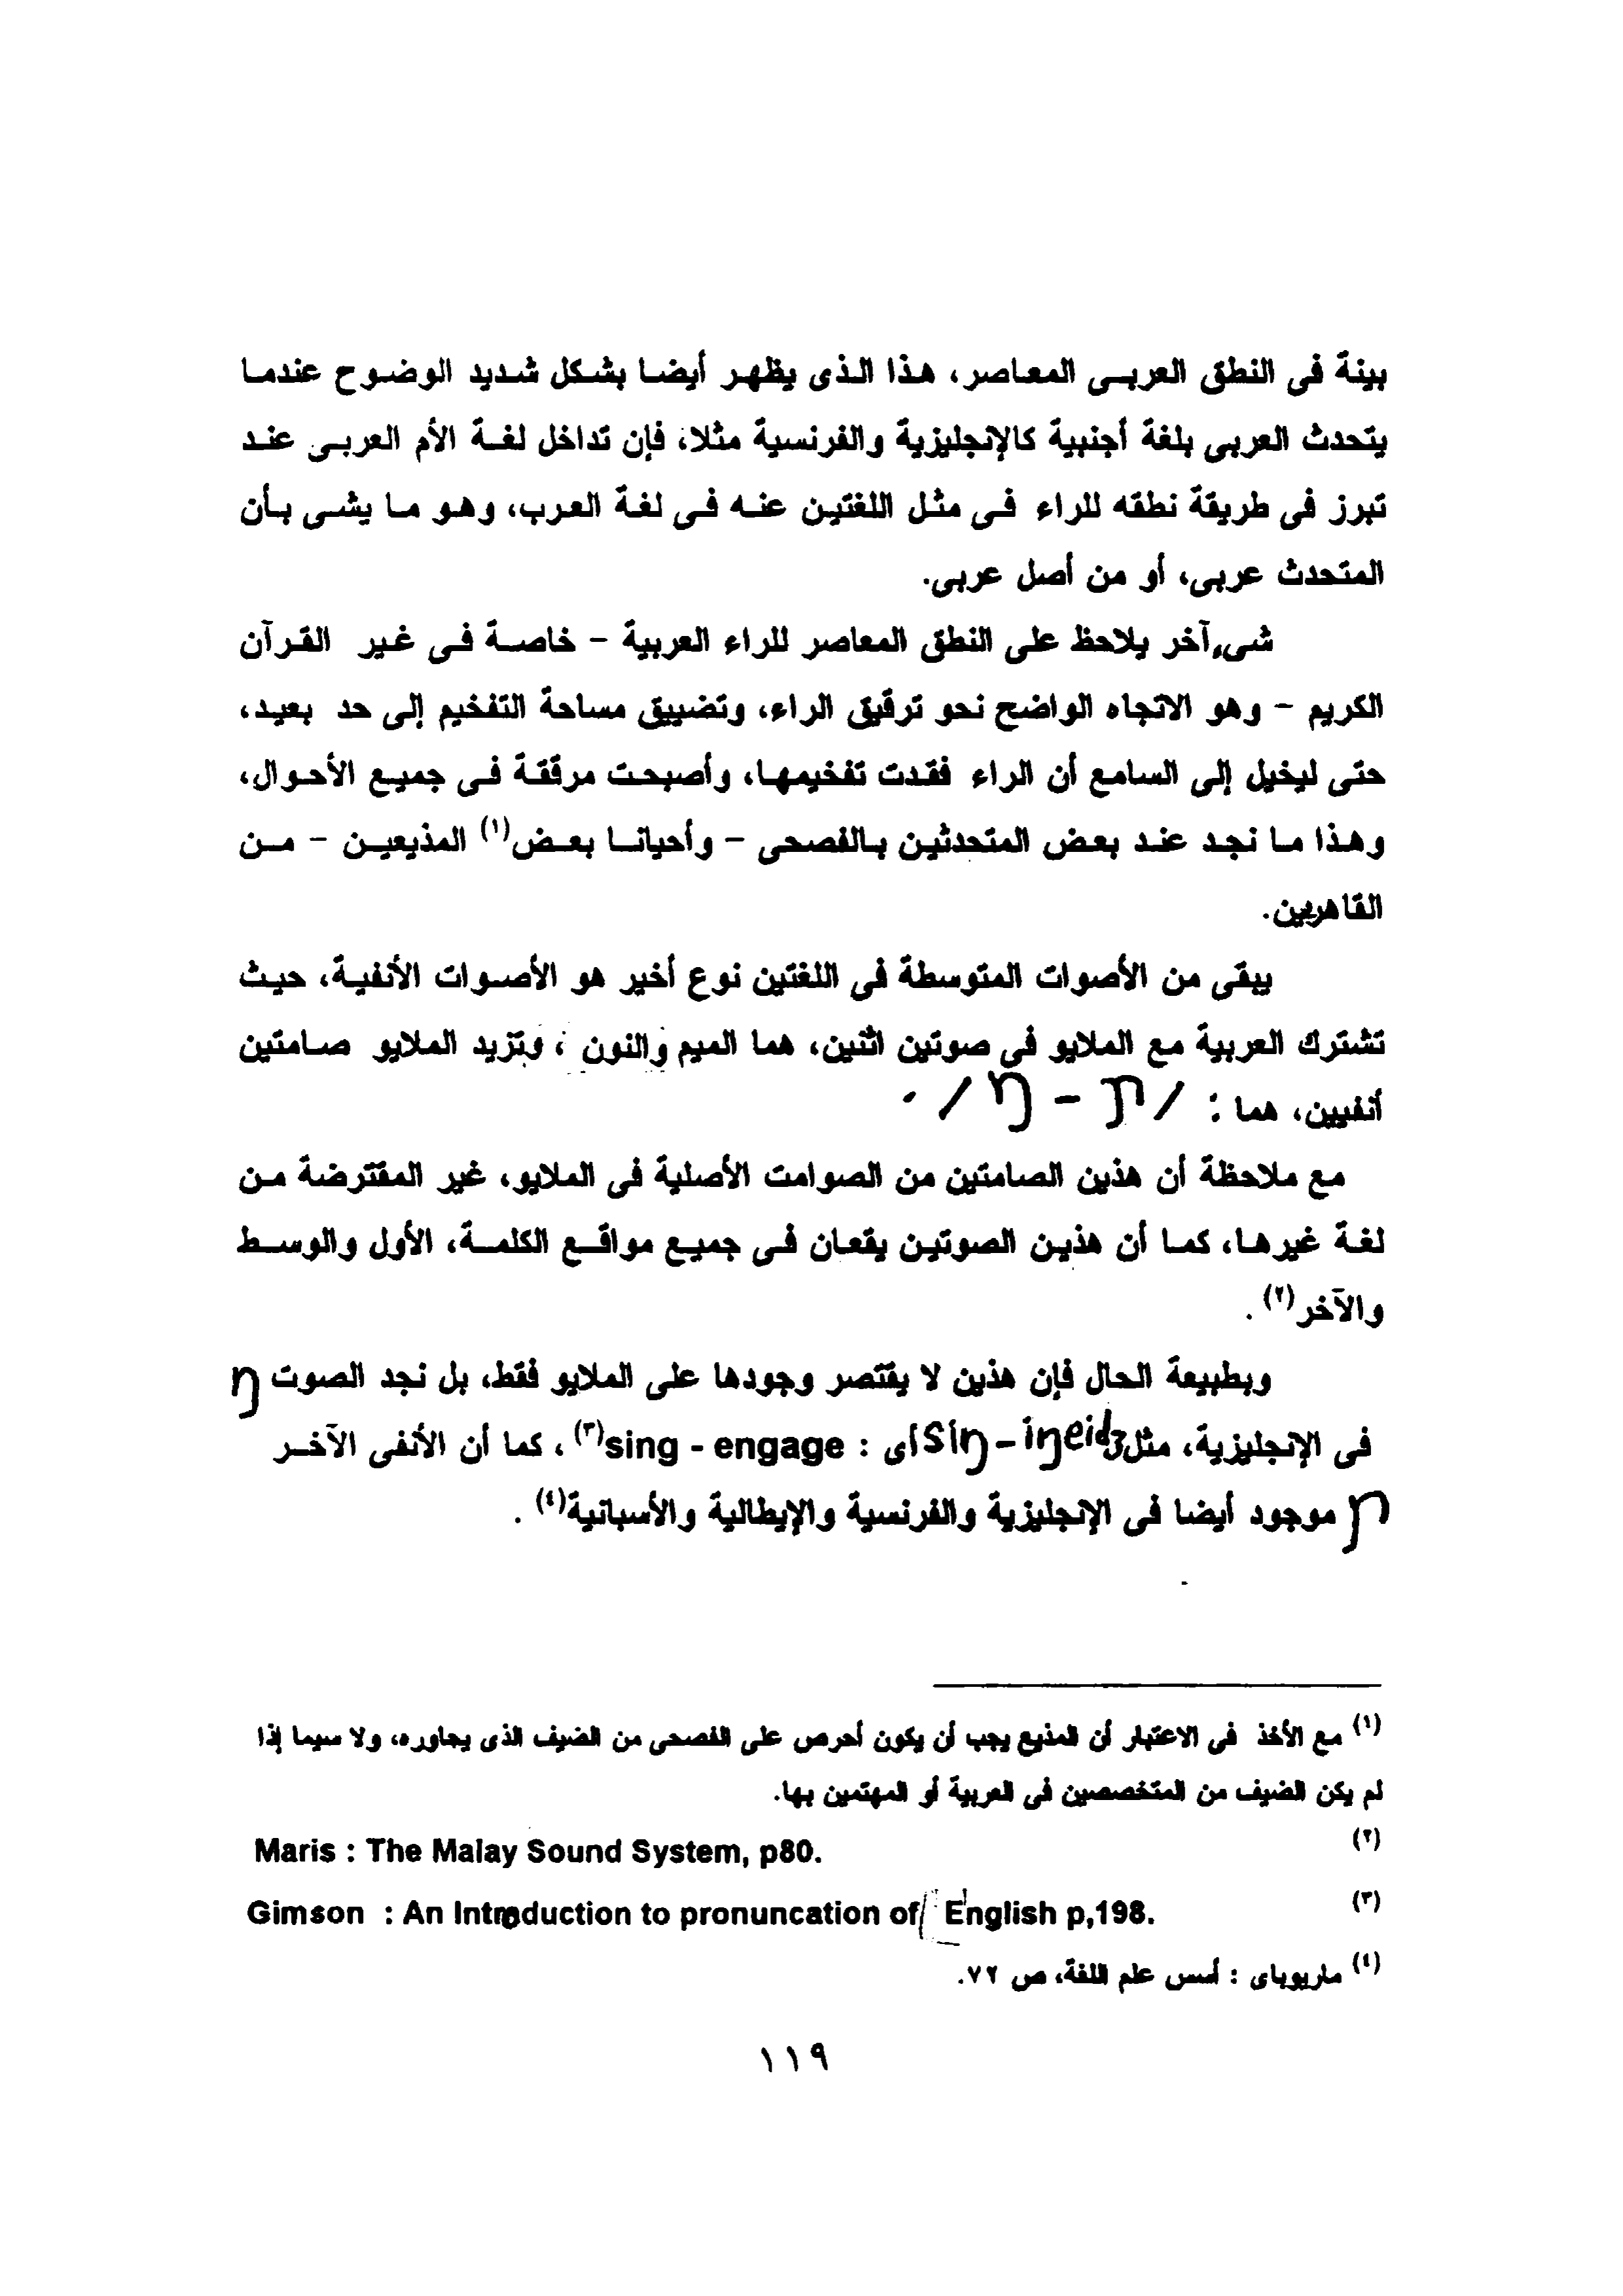 بينة فى النطق العربى المعاصر، هذا الذى يظهر أيضا بشكل شديد الوضوح عندما
يتحدث العربى بلغة أجنبية كالإنجليزية والفرنسية مثلا، فإن تداخل لغة الأم العربى عند
تبرز فى طريقة نطقه للراء فى مثل اللغتين عنه فى لغة العرب، وهو ما يشى بأن
المتحدث عربى، أو من أصل عربى.
شىء آخر يلاحظ على النطق المعاصر للراء العربية - خاصة فى غير القرآن
الكريم - وهو الاتجاه الواضح نحو ترقيق الراء، وتضييق مساحة التفخيم إلى حد بعيد،
حتى ليخيل إلى السامع أن الراء فقدت تفخيمها، وأصبحت مرققة فى جميع الأحوال،
وهذا ما نجد عند بعض المتحدثين بالفصحى - وأحيانا بعض(١) المذيعين - من
القاهريين.
يبقى من الأصوات المتوسطة فى اللغتين نوع أخير هو الأصوات الأنفية، حيث
تشترك العربية مع الملايو فى صوتين اثنين، هما الميم والنون ، وتزيد الملايو صامتين
أنفيين، هما : / ɲ - ŋ / .
مع ملاحظة أن هذين الصامتين من الصوامت الأصلية فى الملايو، غير المقترضة من
لغة غيرها، كما أن هذين الصوتين يقعان فى جميع مواقع الكلمة، الأول والوسط
والآخر(٢) .
وبطبيعة الحال فإن هذين لا يقتصر وجودها على الملايو فقط، بل نجد الصوت ŋ
فى الإنجليزية، مثل siŋ - iŋeidʒ أى : sing - engage(٣) ، كما أن الأنفى الآخر
ɲ موجود أيضا فى الإنجليزية والفرنسية والإيطالية والأسبانية(٤) .
(١) مع الأخذ فى الاعتبار أن المذيع يجب أن يكون أحرص على الفصحى من الضيف الذى يجاوره، ولا سيما إذا
لم يكن الضيف من المتخصصين فى العربية أو المهتمين بها.
(٢) Maris : The Malay Sound System, p80.
(٣) Gimson : An Introduction to pronuncation of English p,198.
(٤) ماريوباى : أسس علم اللغة، ص ٧٢.
١١٩